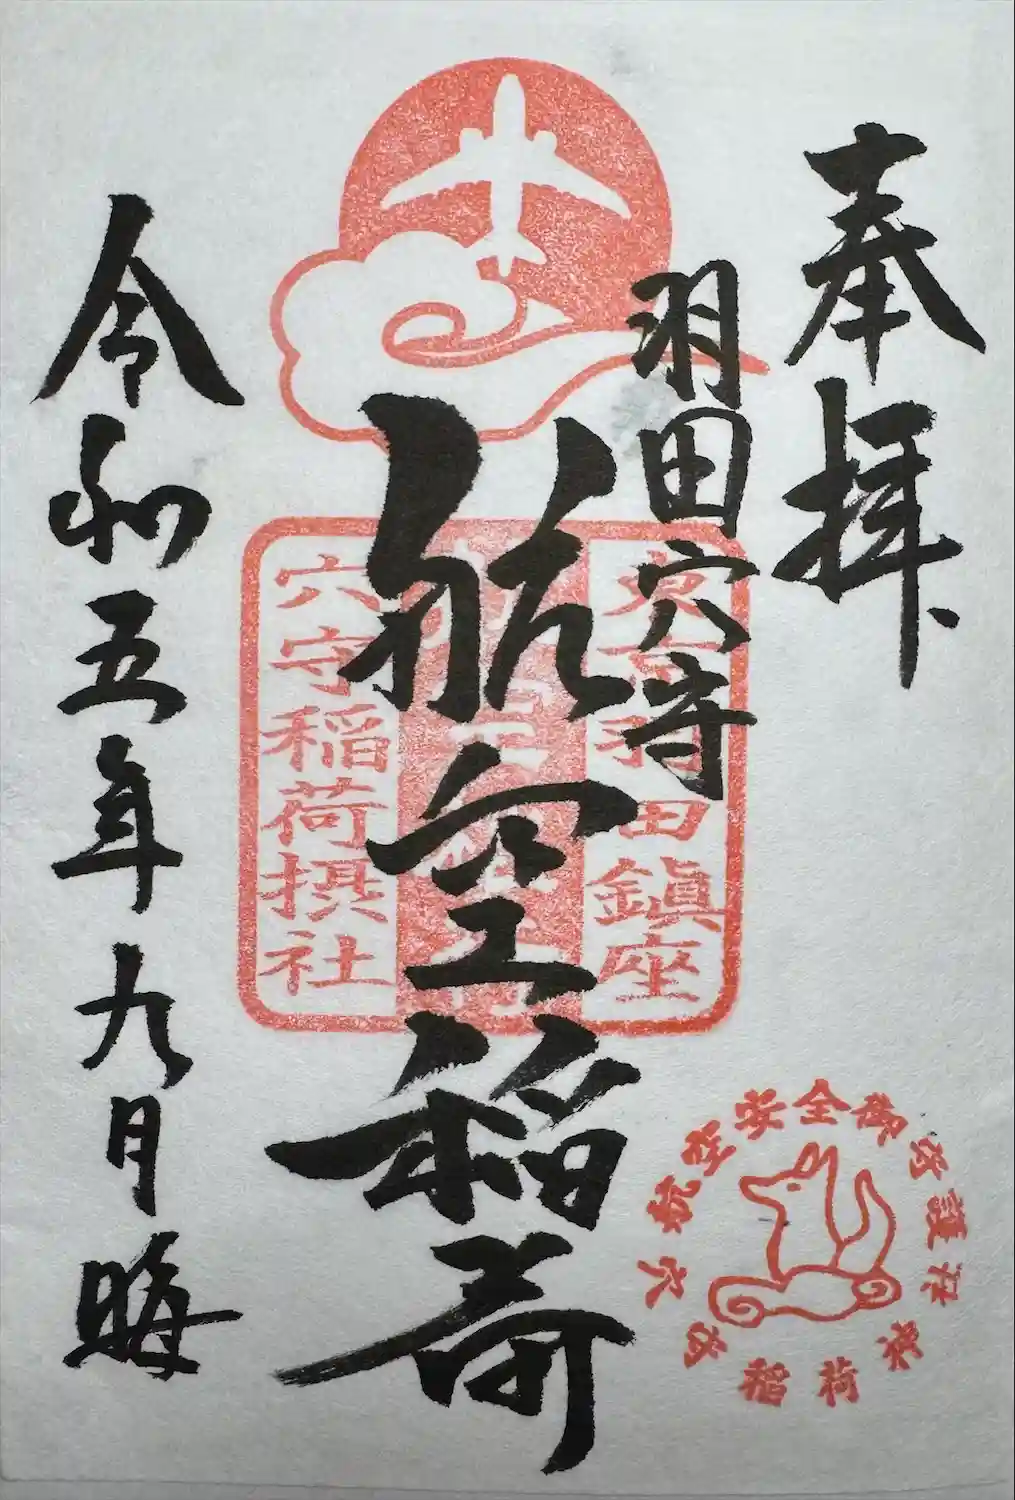 奉拝
羽田穴守
航空稲荷
令和五年九月晦
東京羽田鎭座
穴守稲荷摂社
安全御守護
稲荷